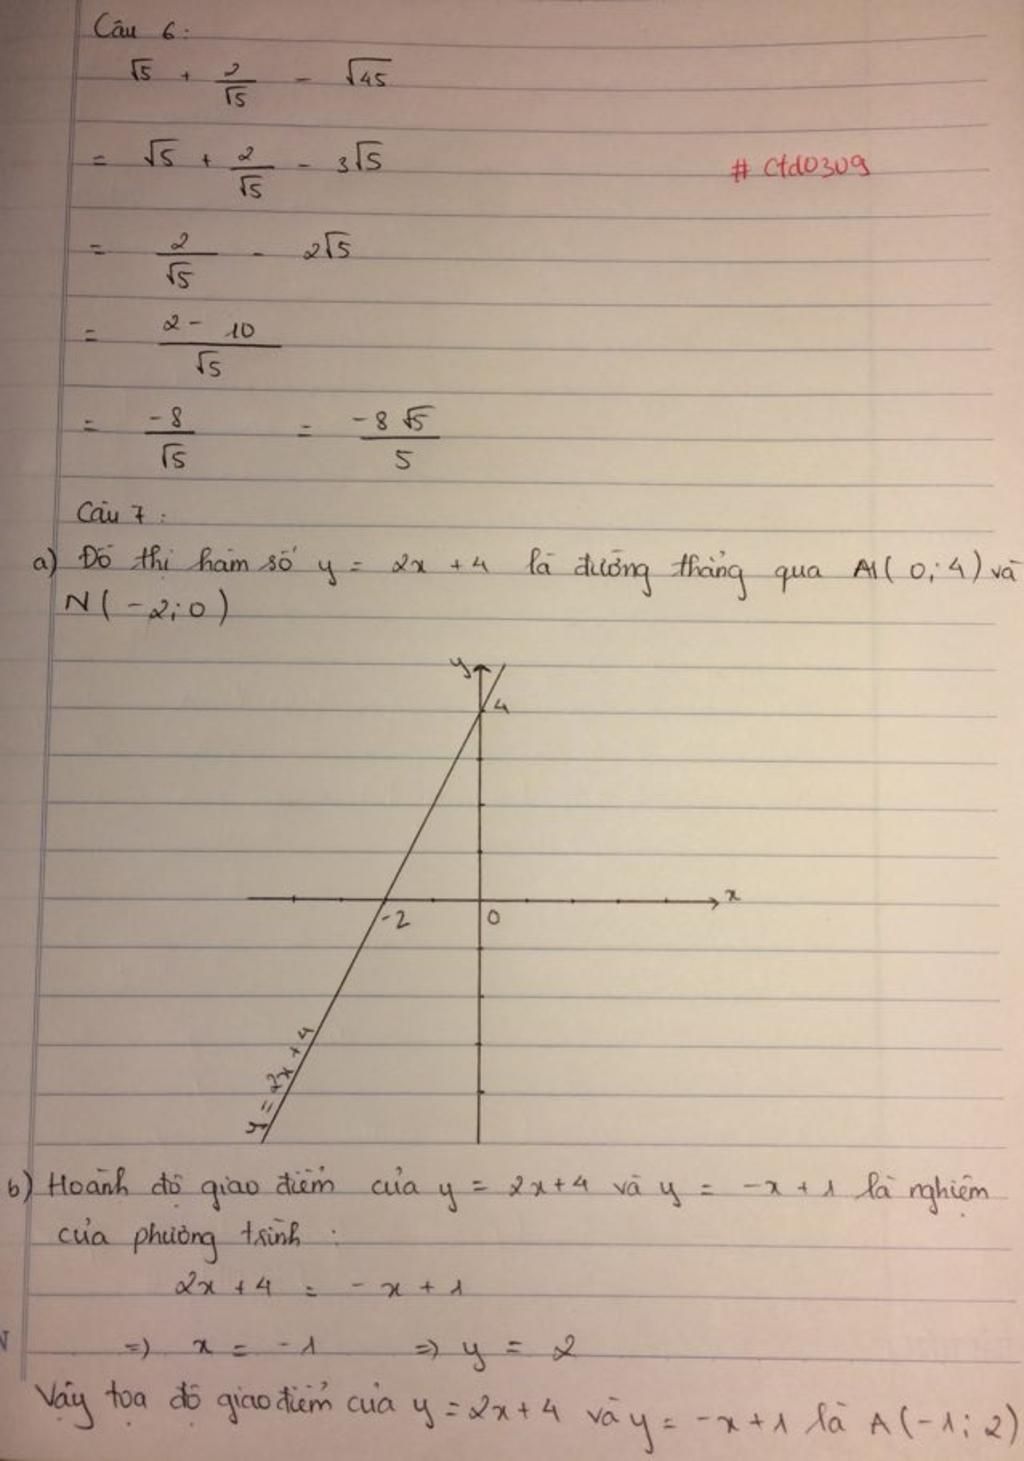 Câu 6:
√5 + 2/√5 - √45
= √5 + 2/√5 - 3√5
# Ctd0309
= 2/√5 - 2√5
= (2 - 10)/√5
= -8/√5 = -8√5/5
Câu 7:
a) Đồ thị hàm số y = 2x + 4 là đường thẳng qua M(0; 4) và
N(-2; 0)
y
4
x
-2 0
y = 2x + 4
b) Hoành độ giao điểm của y = 2x + 4 và y = -x + 1 là nghiệm
của phương trình:
2x + 4 = -x + 1
=> x = -1 => y = 2
Vậy tọa độ giao điểm của y = 2x + 4 và y = -x + 1 là A(-1; 2)